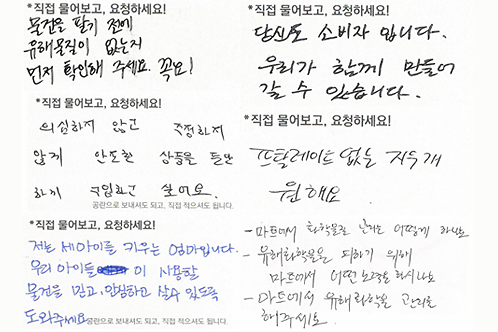 *직접 물어보고, 요청하세요!
물건을 팔기 전에
유해물질이 없는지
먼저 확인해 주세요. 꼭요!
*직접 물어보고, 요청하세요!
의심하지 않고 걱정하지
않게 안전한 상품을
하게 구입하고 싶어요.
공란으로 보내셔도 되고, 직접 적으셔도 됩니다.
*직접 물어보고, 요청하세요!
저는 세아이를 키우는 엄마입니다.
우리 아이들 이 사용할
물건을 믿고, 안심하고 살수 있도록
도와주세요. 공란으로 보내셔도 되고, 직접 적으셔도 됩니다.
*직접 물어보고, 요청하세요!
당신도 소비자 입니다.
우리가 함께 만들어
갈 수 있습니다.
*직접 물어보고, 요청하세요!
프탈레이트 없는 지우개
원해요
- 마트에서 화학물질 관리는 어떻게 하나요
- 유해화학물을 피하기 위해
마트에서 어떤 노력을 하시나요
- 마트에서 유해화학물 관리를
해주세요.